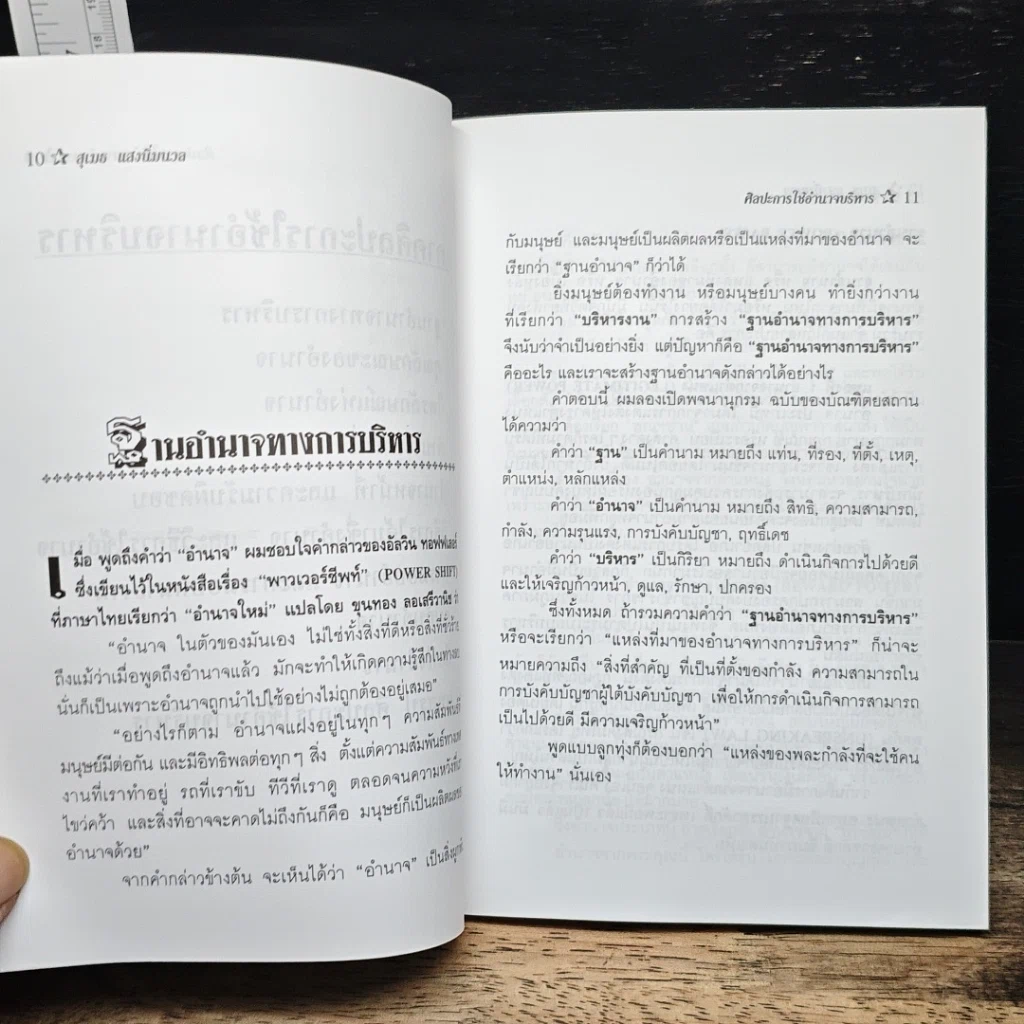 10 สุเมธ แสงนิ่มนวล
ฐานอำนาจทางการบริหาร
เมื่อ พูดถึงคำว่า “อำนาจ” ผมชอบใจคำกล่าวของอัลวิน ทอฟฟเลอร์
ซึ่งเขียนไว้ในหนังสือเรื่อง “พาวเวอร์ชีพท์” (POWER SHIFT)
ที่ภาษาไทยเรียกว่า “อำนาจใหม่” แปลโดย ขุนทอง ลอเสรีวานิช ว่า
“อำนาจ ในตัวของมันเอง ไม่ใช่ทั้งสิ่งที่ดีหรือสิ่งที่ชั่วร้าย
ถึงแม้ว่าเมื่อพูดถึงอำนาจแล้ว มักจะทำให้เกิดความรู้สึกในทาง
นั่นก็เป็นเพราะอำนาจถูกนำไปใช้อย่างไม่ถูกต้องอยู่เสมอ”
“อย่างไรก็ตาม อำนาจแฝงอยู่ในทุกๆ ความสัมพันธ์ที่
มนุษย์มีต่อกัน และมีอิทธิพลต่อทุกๆ สิ่ง ตั้งแต่ความสัมพันธ์ทาง
งานที่เราทำอยู่ รถที่เราขับ ทีวีที่เราดู ตลอดจนความหวังที่เรา
ไขว่คว้า และสิ่งที่อาจจะคาดไม่ถึงกันก็คือ มนุษย์ก็เป็นผลิตผลของ
อำนาจด้วย”
จากคำกล่าวข้างต้น จะเห็นได้ว่า “อำนาจ” เป็นสิ่ง
ศิลปะการใช้อำนาจบริหาร 11
กับมนุษย์ และมนุษย์เป็นผลิตผลหรือเป็นแหล่งที่มาของอำนาจ จะ
เรียกว่า “ฐานอำนาจ” ก็ว่าได้
ยิ่งมนุษย์ต้องทำงาน หรือมนุษย์บางคน ทำยิ่งกว่างาน
ที่เรียกว่า “บริหารงาน” การสร้าง “ฐานอำนาจทางการบริหาร”
จึงนับว่าจำเป็นอย่างยิ่ง แต่ปัญหาก็คือ “ฐานอำนาจทางการบริหาร”
คืออะไร และเราจะสร้างฐานอำนาจดังกล่าวได้อย่างไร
คำตอบนี้ ผมลองเปิดพจนานุกรม ฉบับของบัณฑิตยสถาน
ได้ความว่า
คำว่า “ฐาน” เป็นคำนาม หมายถึง แท่น, ที่รอง, ที่ตั้ง, เหตุ,
ตำแหน่ง, หลักแหล่ง
คำว่า “อำนาจ” เป็นคำนาม หมายถึง สิทธิ, ความสามารถ,
กำลัง, ความรุนแรง, การบังคับบัญชา, ฤทธิ์เดช
คำว่า “บริหาร” เป็นกิริยา หมายถึง ดำเนินกิจการไปด้วยดี
และให้เจริญก้าวหน้า, ดูแล, รักษา, ปกครอง
ซึ่งทั้งหมด ถ้ารวมความคำว่า “ฐานอำนาจทางการบริหาร”
หรือจะเรียกว่า “แหล่งที่มาของอำนาจทางการบริหาร” ก็น่าจะ
หมายความถึง “สิ่งที่สำคัญ ที่เป็นที่ตั้งของกำลัง ความสามารถใน
การบังคับบัญชาผู้ใต้บังคับบัญชา เพื่อให้การดำเนินกิจการสามารถ
เป็นไปด้วยดี มีความเจริญก้าวหน้า”
พูดแบบลูกทุ่งก็ต้องบอกว่า “แหล่งของพละกำลังที่จะใช้คน
ให้ทำงาน” นั่นเอง